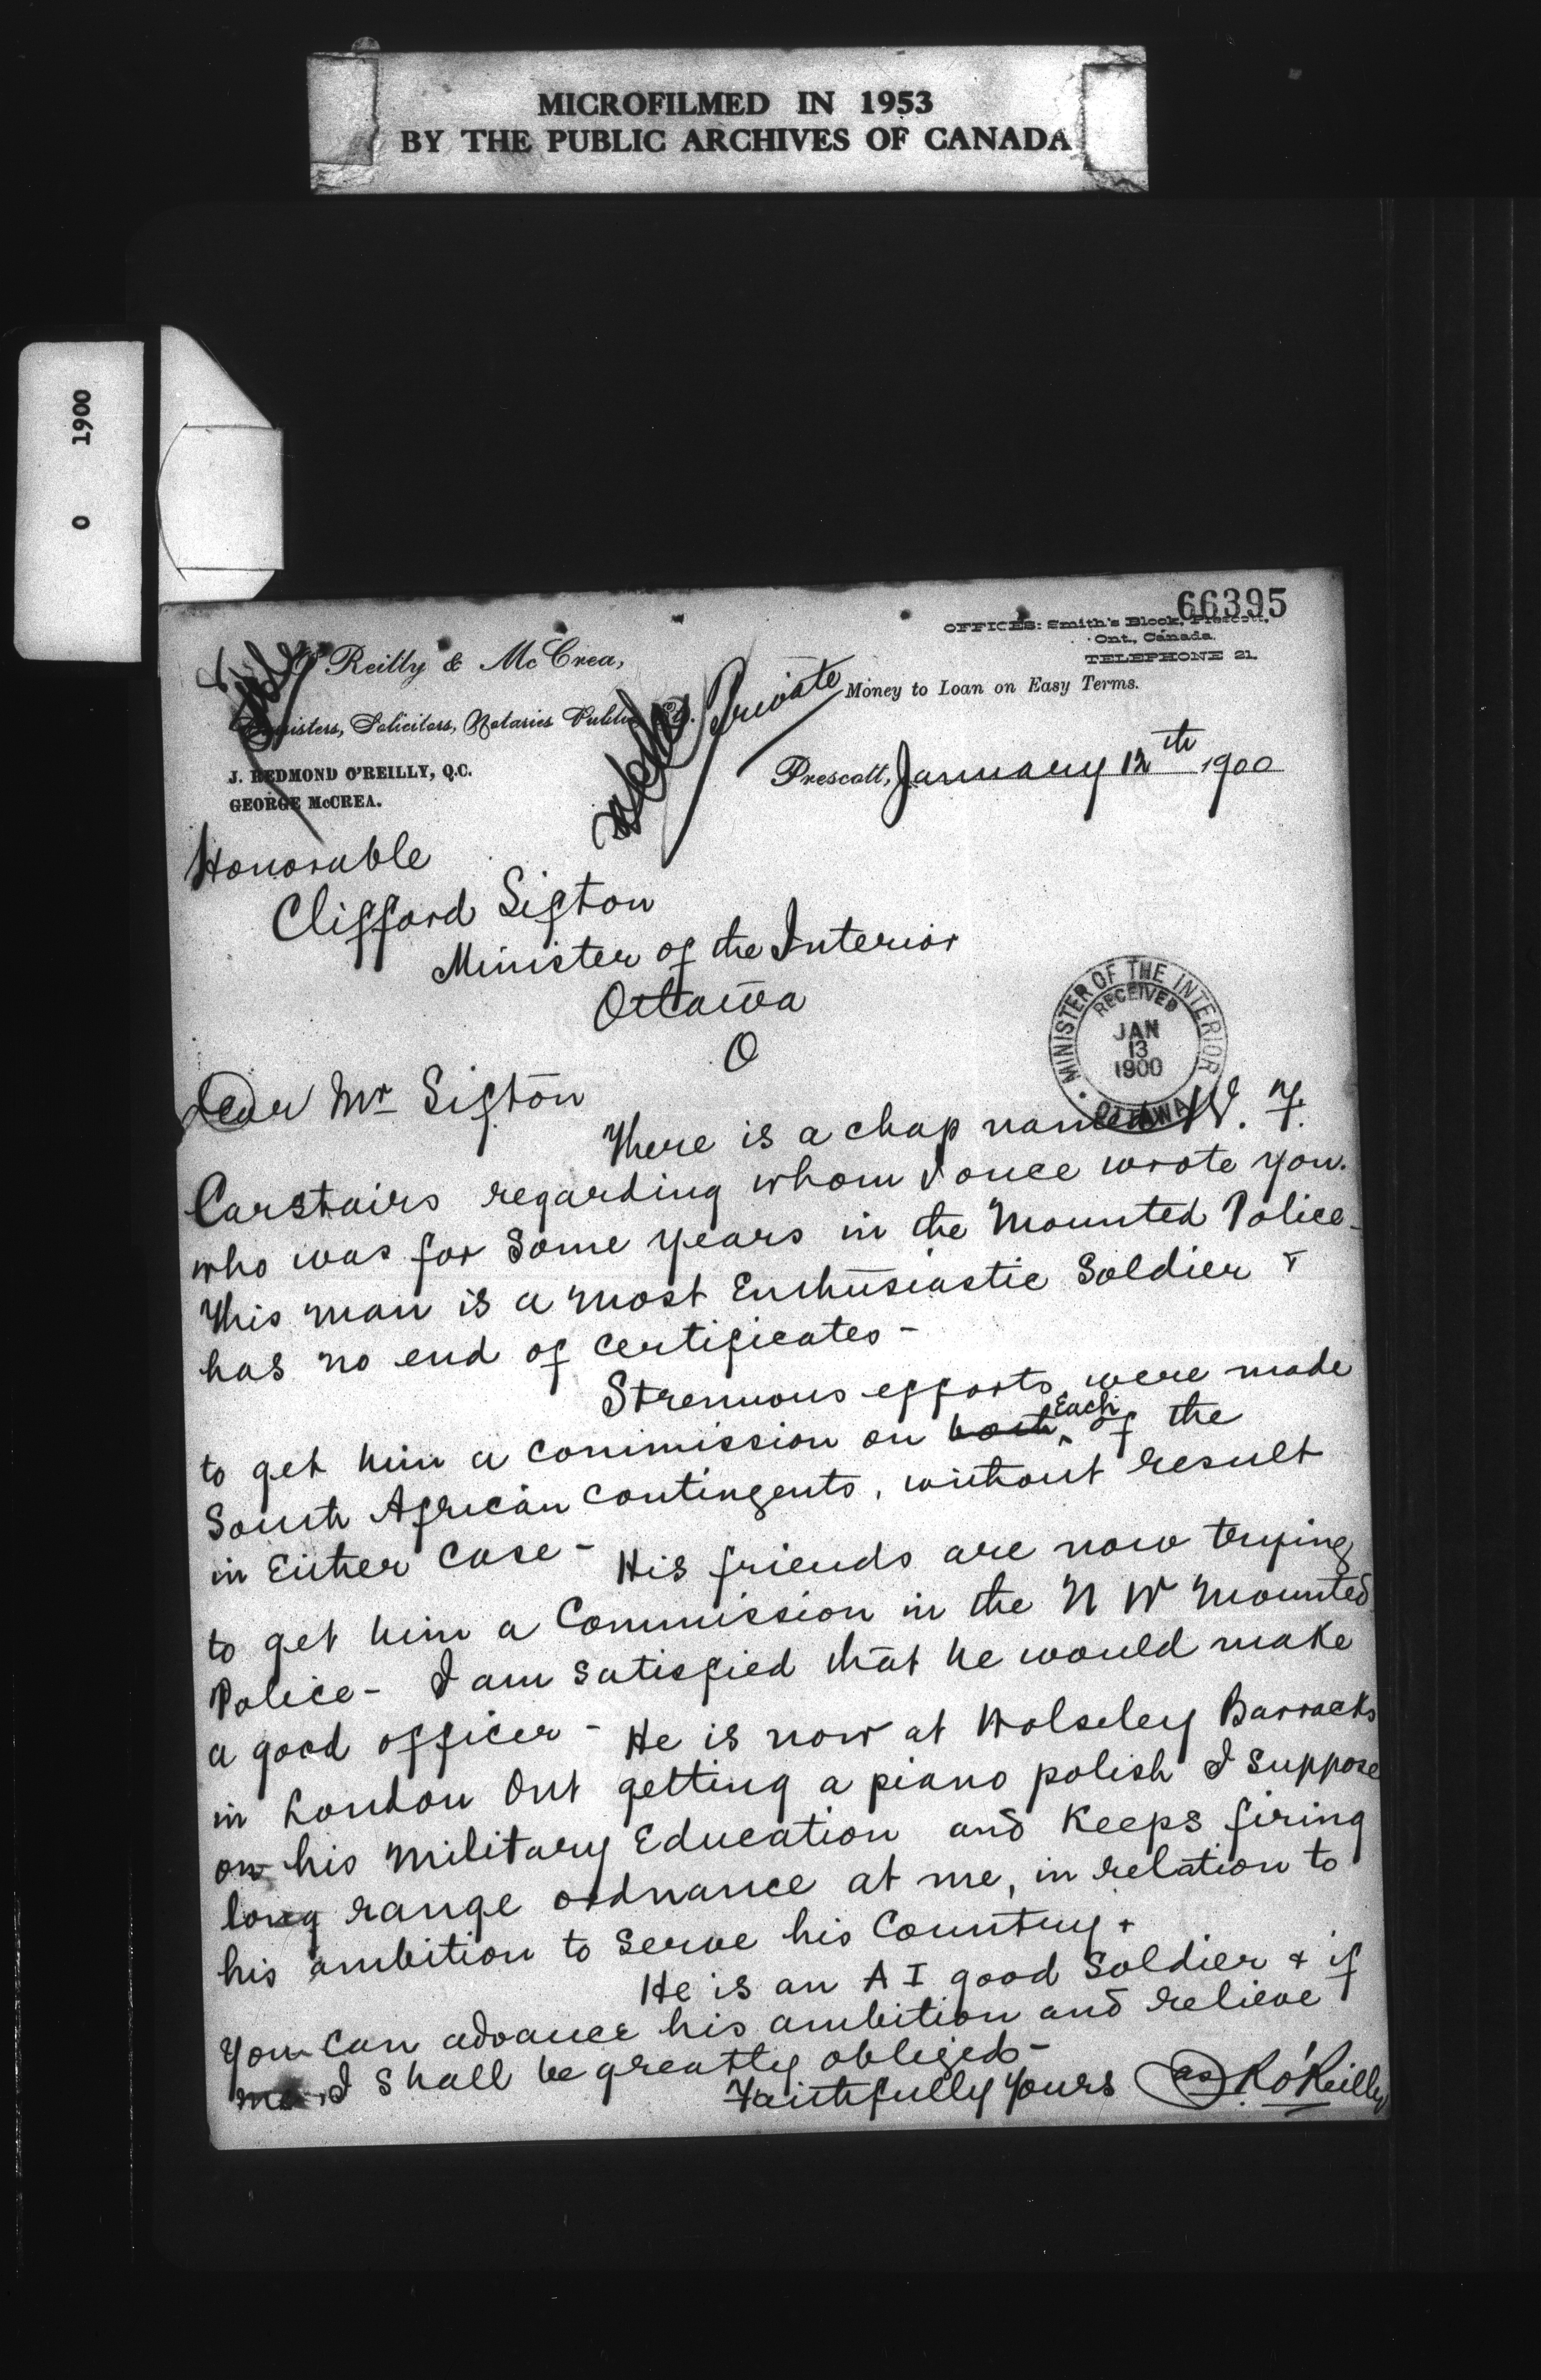 MICROFILMED IN 1953
BY THE PUBLIC ARCHIVES OF CANADA
0 1900
66395
OFFICES: Smith's Block, Prescott,
Ont., Canada.
TELEPHONE 21.
O'Reilly & McCrea,
Private
Money to Loan on Easy Terms.
Barristers, Solicitors, Notaries Public, &c.
J. REDMOND O'REILLY, Q.C.
GEORGE McCREA.
Prescott, January 12th 1900
Honorable
Clifford Sifton
Minister of the Interior
Ottawa
O
MINISTER OF THE INTERIOR
RECEIVED
JAN
13
1900
OTTAWA
Dear Mr Sifton
There is a chap named W. F.
Carstairs regarding whom I once wrote you.
who was for some years in the Mounted Police -
This man is a most Enthusiastic Soldier &
has no end of certificates -
Strenuous efforts were made
to get him a commission on both Each of the
South African Contingents, without result
in Either Case - His friends are now trying
to get him a Commission in the N W Mounted
Police - I am satisfied that he would make
a good officer - He is now at Wolseley Barracks
in London Ont getting a piano polish I suppose
on his Military Education and Keeps firing
long range ordnance at me, in relation to
his ambition to serve his Country.
He is an A I good Soldier & if
you can advance his ambition and relieve
me I shall be greatly obliged -
Faithfully yours R O'Reilly